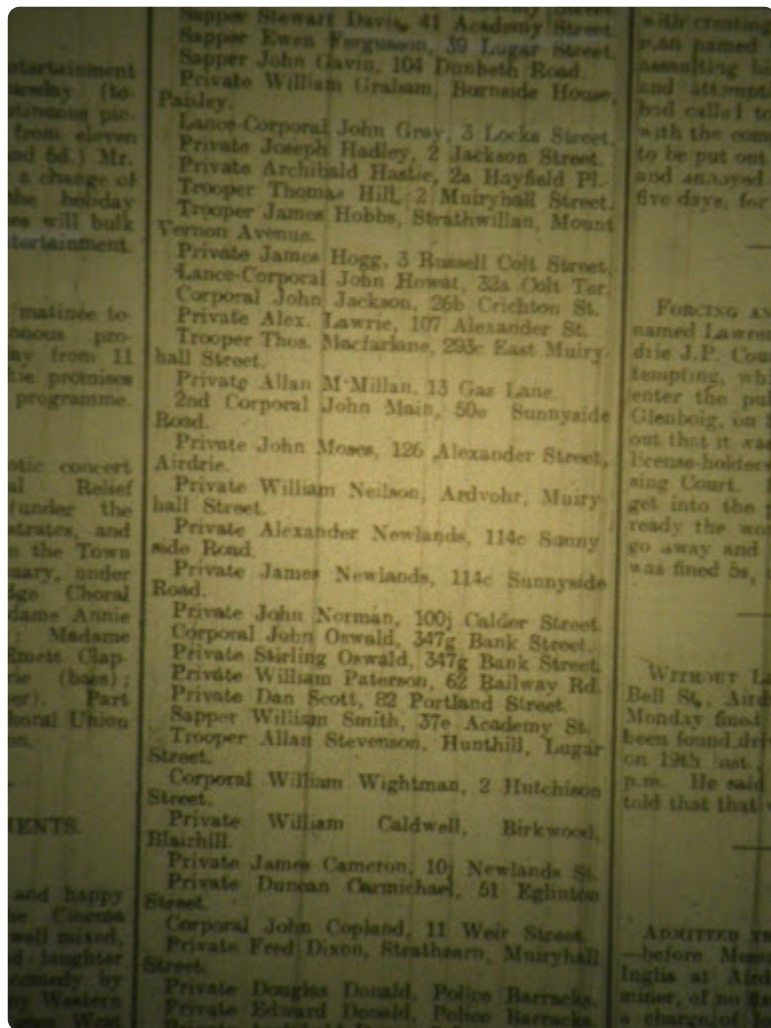 ntertainment
ursday (to-
tinuous pic-
from eleven
nd 6d.) Mr.
a change of
the holiday
es will bulk
tertainment.
matinée to-
nuous pro-
ay from 11
promises
programme.
otic concert
al Relief
under the
strates, and
n the Town
mary, under
dge Choral
dame Annie
; Madame
Emett Clap-
rie (bass);
er). Part
horal Union
on.
ENTS.
and happy
he Cinema
well mixed,
d laughter
comedy by
ny Western
West
Academy Street
Sapper Stewart Davis, 41 Academy Street
Sapper Ewen Ferguson, 39 Lugar Street.
Sapper John Gavin, 104 Dunbeth Road.
Private William Graham, Burnside House,
Paisley.
Lance-Corporal John Gray, 3 Locks Street.
Private Joseph Hadley, 2 Jackson Street.
Private Archibald Hastie, 2a Hayfield Pl.
Trooper Thomas Hill, 2 Muiryhall Street.
Trooper James Hobbs, Strathwillan, Mount
Vernon Avenue.
Private James Hogg, 3 Russell Colt Street.
Lance-Corporal John Howat, 32a Colt Ter.
Corporal John Jackson, 26b Crichton St.
Private Alex. Lawrie, 107 Alexander St.
Trooper Thos. Macfarlane, 293c East Muiry-
hall Street.
Private Allan M'Millan, 13 Gas Lane.
2nd Corporal John Main, 50e Sunnyside
Road.
Private John Moses, 126 Alexander Street,
Airdrie.
Private William Neilson, Ardvohr, Muiry-
hall Street.
Private Alexander Newlands, 114c Sunny
side Road.
Private James Newlands, 114c Sunnyside
Road.
Private John Norman, 100j Calder Street.
Corporal John Oswald, 347g Bank Street.
Private Stirling Oswald, 347g Bank Street.
Private William Paterson, 62 Railway Rd.
Private Dan Scott, 82 Portland Street.
Sapper William Smith, 37e Academy St.
Trooper Allan Stevenson, Hunthill, Lugar
Street.
Corporal William Wightman, 2 Hutchison
Street.
Private William Caldwell, Birkwood,
Blairhill.
Private James Cameron, 10j Newlands St.
Private Duncan Carmichael, 51 Eglinton
Street.
Corporal John Copland, 11 Weir Street.
Private Fred Dixon, Strathearn, Muiryhall
Street.
Private Douglas Donald, Police Barracks.
Private Edward Donald, Police Barracks.
with creating
man named
assaulting hi
and attempt
had called to
with the com
to be put out
and annoyed
five days, for
FORCING AN
named Lawren
drie J.P. Cour
tempting, whi
enter the pul
Glenboig, on
out that it was
license-holders
sing Court.
get into the
ready the wo
go away and
was fined 5s,
WITHOUT LA
Bell St., Aird
Monday fined
been found dri
on 19th inst.,
p.m. He said
told that that
ADMITTED TH
—before Messr
Inglis at Aird
miner, of no fix
a charge of